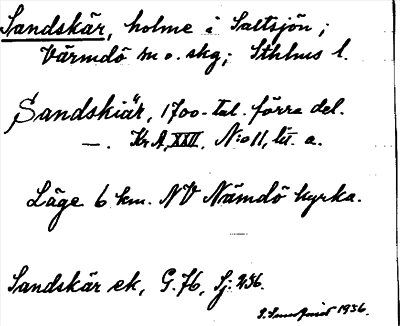 Sandskär, holme i Saltsjön;
Värmdö sn o. skg; Sthlms l.
Sandskiär, 1700-tal. förra del.
—. Kr A, XXII, No 11, lit. a.
Läge 6 km. NV Nämdö kyrka.
Sandskär ek, G. 76, Sj: 236.
1936.